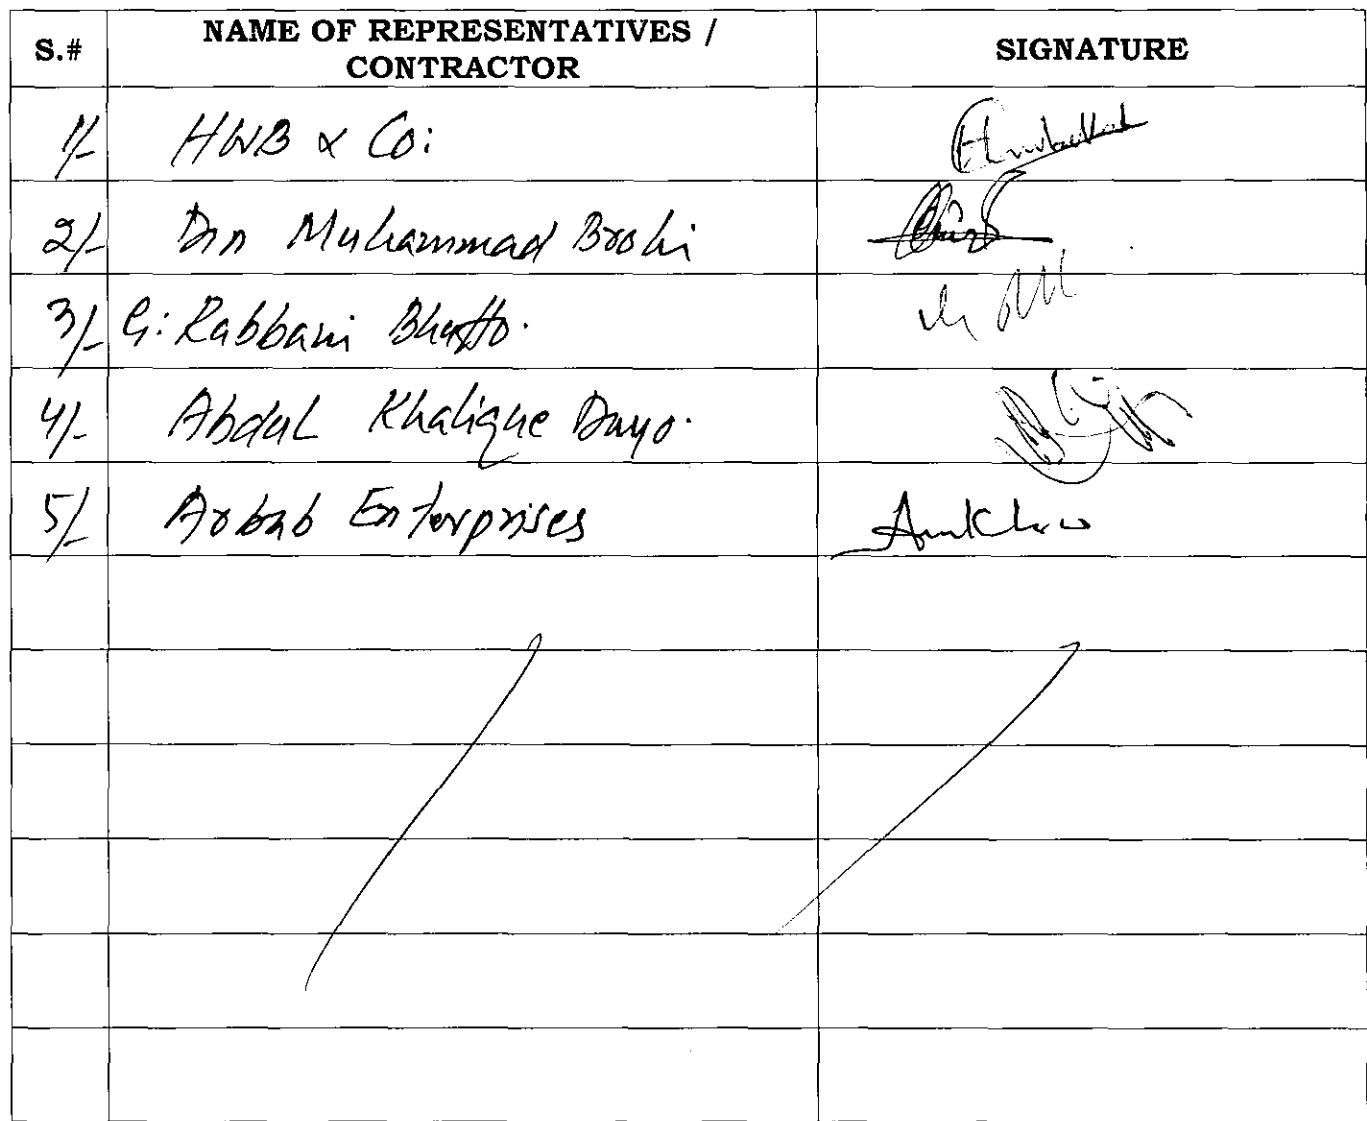 S.# NAME OF REPRESENTATIVES / CONTRACTOR SIGNATURE
1/- HWB & Co:
2/- Din Muhammad Brohi
3/- G: Rabbani Bhutto.
4/- Abdul Khalique Dayo.
5/- Arbab Enterprises